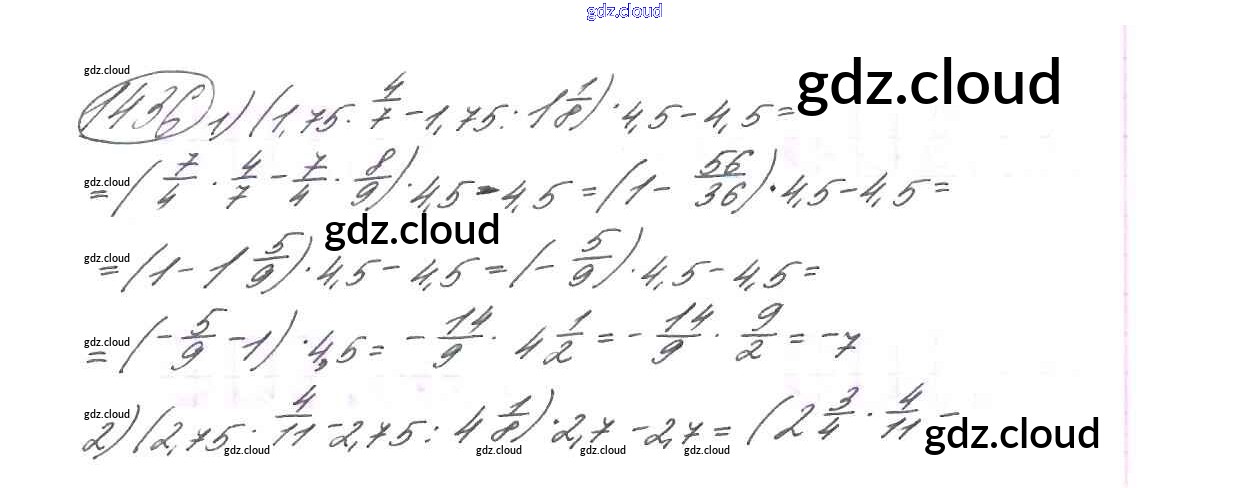 gdz.cloud
gdz.cloud
1436 1) (1,75 · 4/7 - 1,75 : 1 1/8) · 4,5 - 4,5 =
gdz.cloud
gdz.cloud
= (7/4 · 4/7 - 7/4 · 8/9) · 4,5 - 4,5 = (1 - 56/36) · 4,5 - 4,5 =
gdz.cloud
gdz.cloud
= (1 - 1 5/9) · 4,5 - 4,5 = (- 5/9) · 4,5 - 4,5 =
gdz.cloud
= (- 5/9 - 1) · 4,5 = - 14/9 · 4 1/2 = - 14/9 · 9/2 = -7
gdz.cloud
2) (2,75 · 4/11 - 2,75 : 4 1/8) · 2,7 - 2,7 = (2 3/4 · 4/11 -
gdz.cloud
gdz.cloud gdz.cloud gdz.cloud gdz.cloud